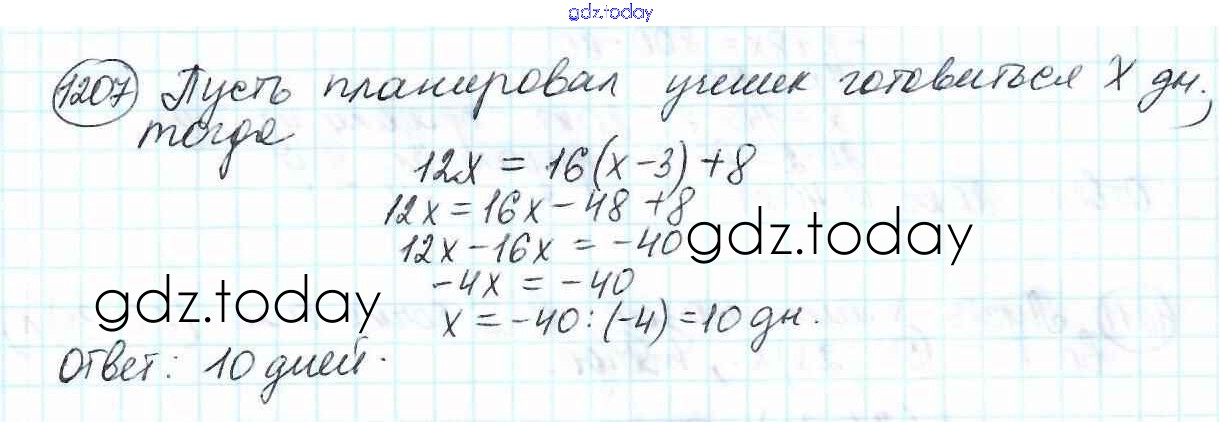 gdz.today
1207 Пусть планировал ученик готовиться x дн.,
тогда
12x = 16(x-3)+8
12x = 16x - 48 + 8
12x - 16x = -40
gdz.today
-4x = -40
gdz.today
x = -40 : (-4) = 10 дн.
Ответ: 10 дней.